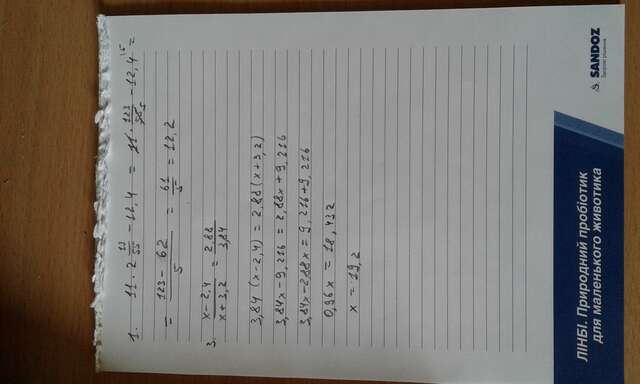 1. 11 · 2 13/55 - 12,4 = 11 · 123/55 5 - 12,4 \5 =
= 123 - 62 / 5 = 61/5 = 12,2
3. x - 2,4 / x + 3,2 = 2,88 / 3,84
3,84 (x - 2,4) = 2,88 (x + 3,2)
3,84x - 9,216 = 2,88x + 9,216
3,84x - 2,88x = 9,216 + 9,216
0,96x = 18,432
x = 19,2
ЛІНБІ. Природний пробіотик
для маленького животика
SANDOZ
Здорові рішення